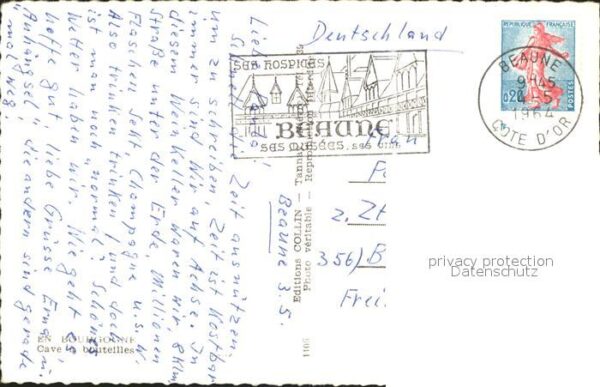 Deutschland
RÉPUBLIQUE FRANÇAISE
0,20
POSTES
BEAUNE
9H45
4-5
1964
COTE D'OR
SES HOSPICES
BEAUNE
SES MUSÉES, SES VINS
Beaune 3.5.
Zeit ausnützen,
um zu schreiben, Zeit ist kostbar
immer sind wir auf Achse. In
diesem Weinkeller waren wir, 8 Klm
Straße unter der Erde, Millionen
Flaschen Sekt Champagne u.s.w.
Also trinken, trinken und doch
ist man noch normal! Schönes
Wetter haben wir. Wie geht es,
hoffe gut. Liebe Grüsse Erna m.
Anhängsel, die andern sind gerade
EN BOURGOGNE
Cave à bouteilles
Editions COLLIN
Photo véritable
2.
356) B
Frei
privacy protection
Datenschutz